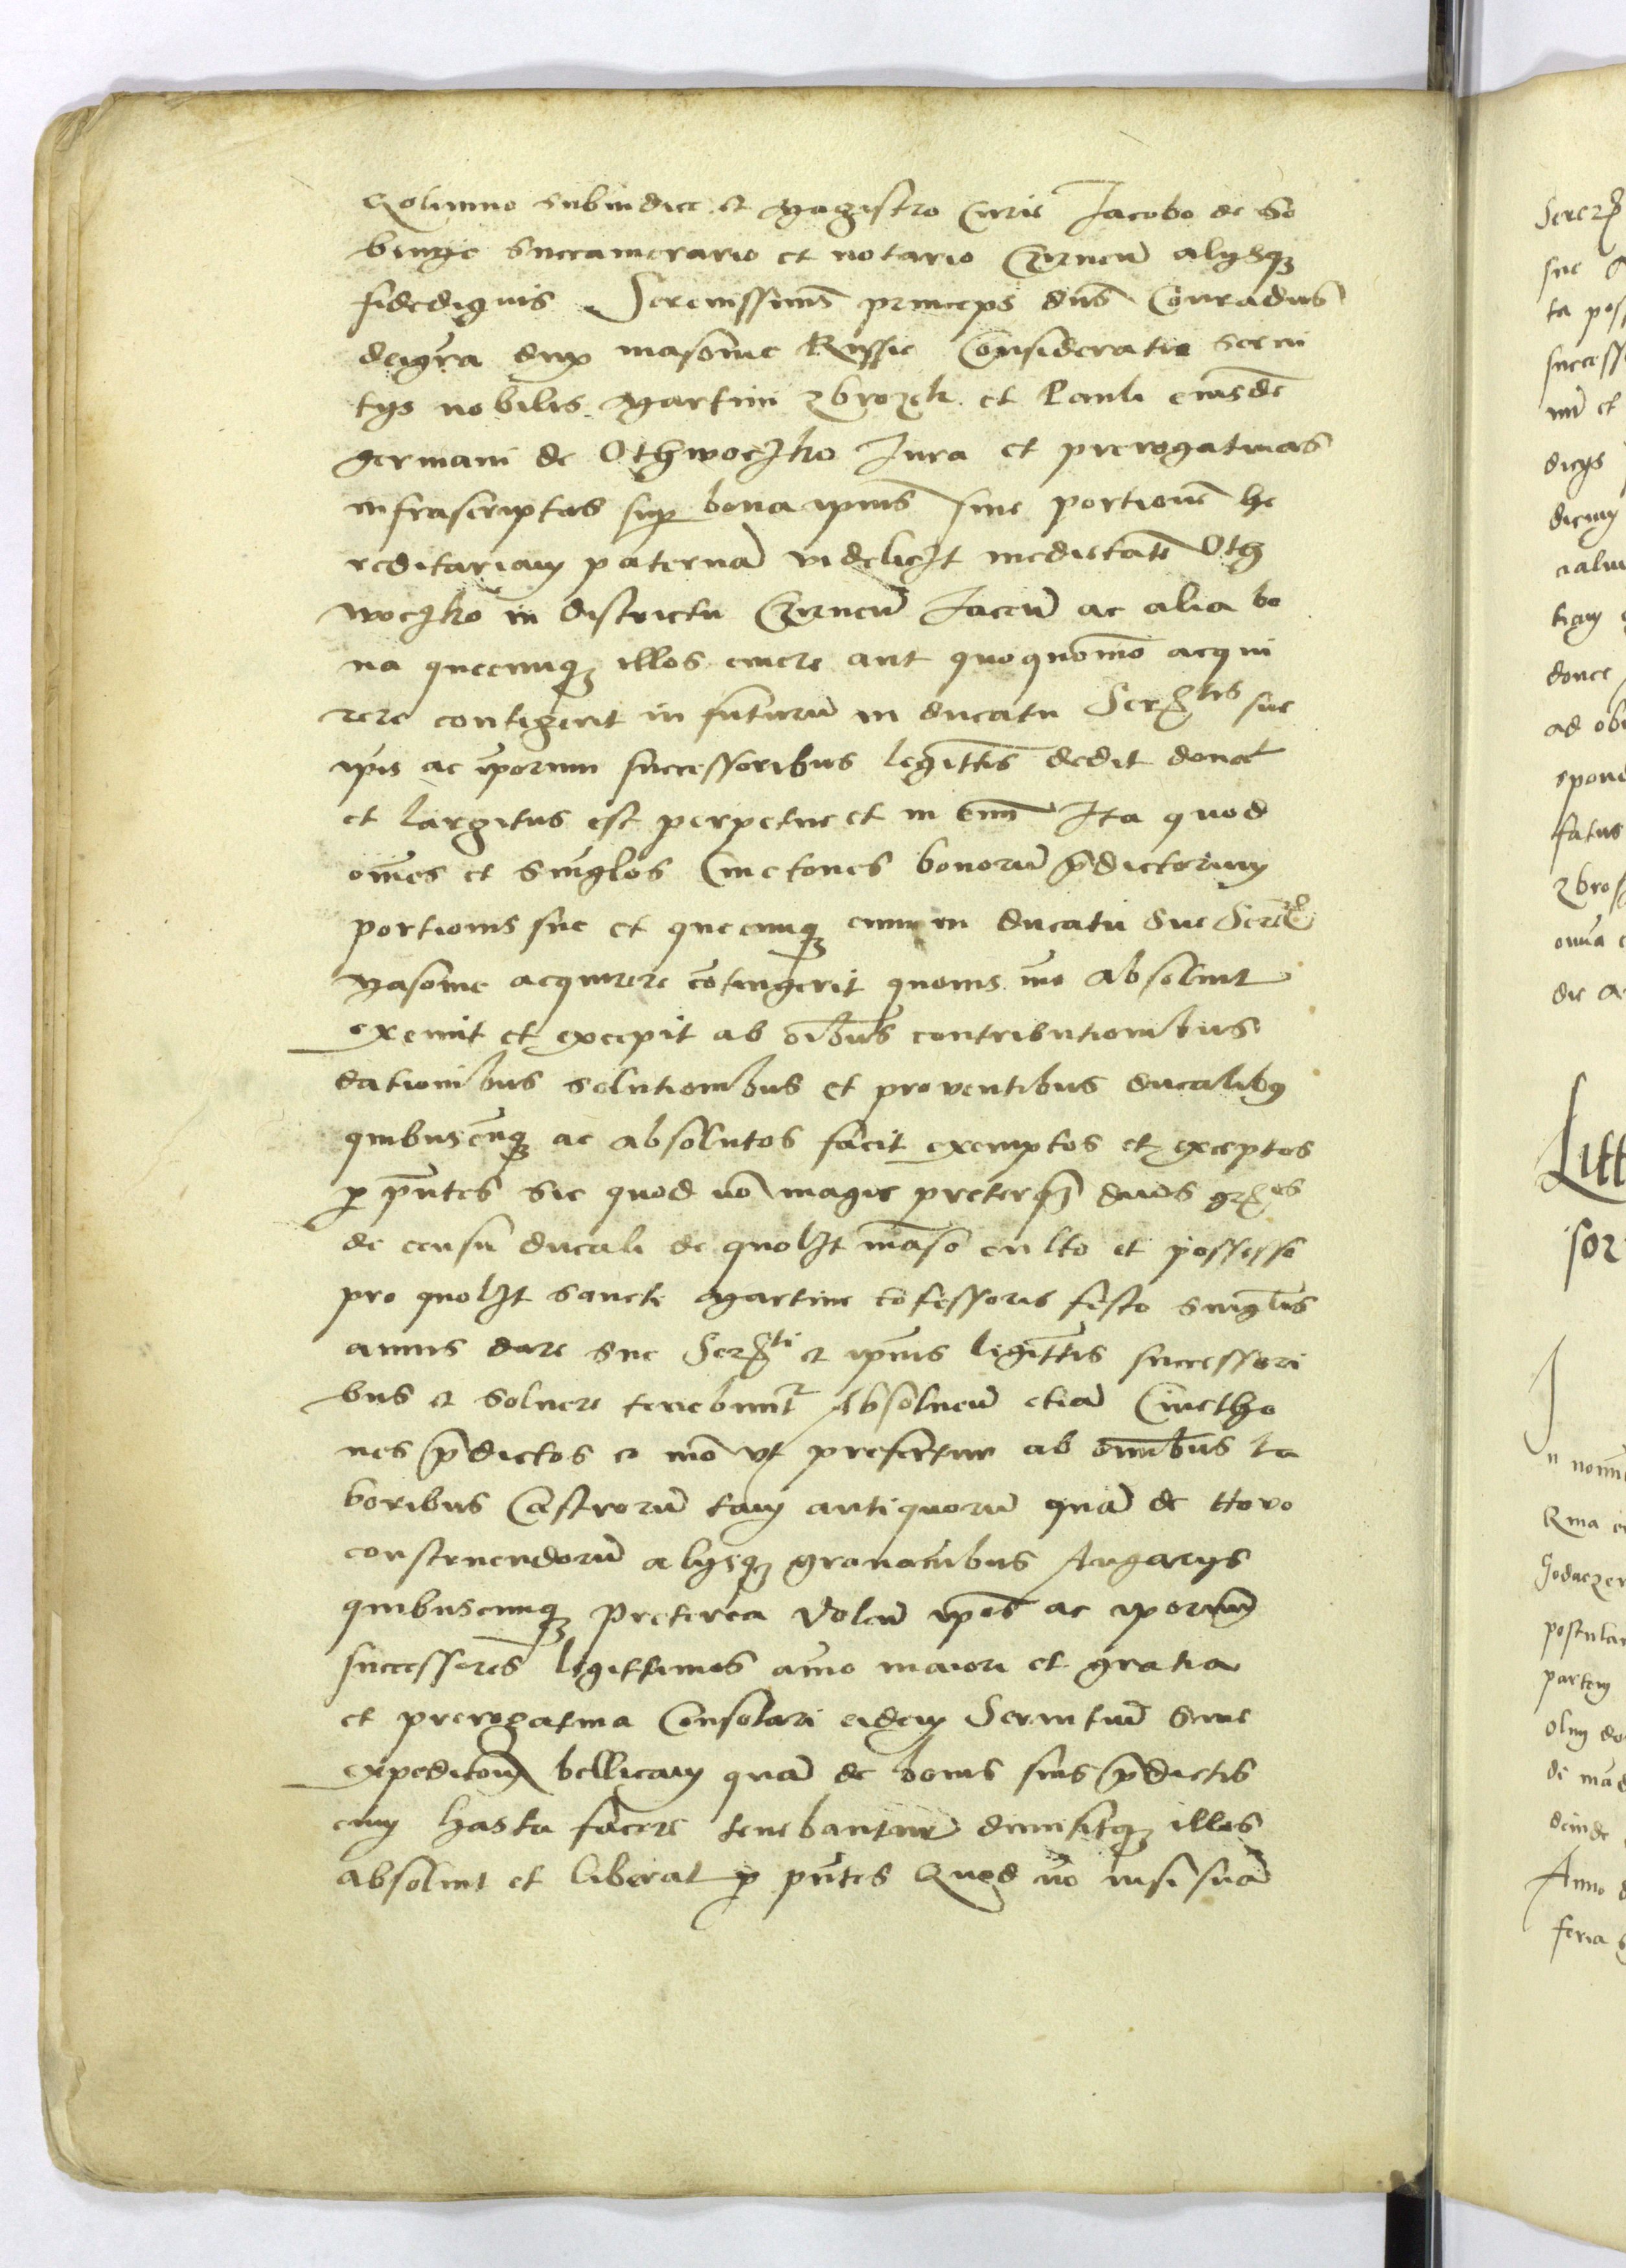 Rolinno subiudice et Magistro Curie Jacobo de So
binge Succamerario et notario Czirneñ alysq3
fidedignis Serenissimus princeps dns Conradus
deigra dux masouie Russie Consideratis serui
tys nobilis Martini Zbrozek et Pauli eiusde
germani de Othwoczko Jura et prerogatiuas
infrascriptas sup bona ipius siue portione he
reditariam paterna videlict medietate Oth
woczko in districtu Czirneñ Jaceñ ac alia bo
na quecunq3 illos emere aut quoquomo acqui
rere contigerit in futuru in ducatu Sertis sue
ipis ac iporum successoribus legittis dedit donat
et largitus est perpetue et in euu Ita quod
omes et singlos Cmetones bonoru pdictorum
portionis sue et quecunq3 eum in ducatu sue Seretis
Masouie acquirere cotingerit quouis mo absoluit
exemit et excepit ab oibus contributionibus
dationibus solutionibus et prouentibus ducalibus
quibuscuq3 ac absolutos facit exemptos et exceptos
p pntes Sic quod no magis preterq duos gros
de censu ducali de quolit maso culto et possesso
pro quolit sancti Martini cofessoris festo singlis
annis dare sue Serti et ipius legittis successori
bus et soluere tenebunt Absolueñ etia Cmetho
nes pdictos eo mo vt prefertur ab omibus la
boribus Castroru tam antiquoru qua de nouo
construendoru alysq3 grauaibus Angarys
quibuscunq3 Preterea Voleñ ipos ac iporum
successores legittimos amo maiori et gratia
et prerogatiua Consolari eidem Seruitiu siue
expeditom bellicam qua de bonis suis pdictis
cum hasta facere tenebantur dimisitq3 illos
absoluit et liberat p pntes Quod no nisi sua